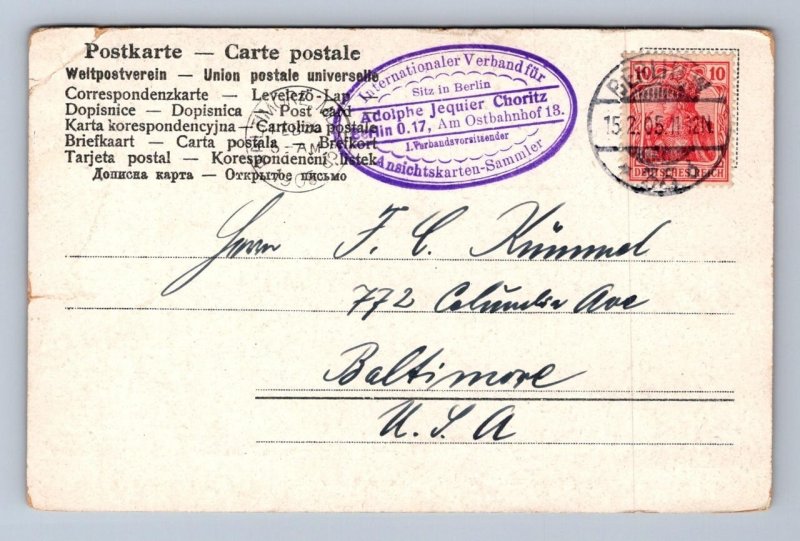 Postkarte — Carte postale
Weltpostverein — Union postale universelle
Correspondenzkarte — Levelező-Lap
Dopisnice — Dopisnica — Post card
Karta korespondencyjna — Cartolina postale
Briefkaart — Carta postala — Brefkort
Tarjeta postal — Korespondenční lístek
Дописна карта — Открытое письмо
Internationaler Verband für
Sitz in Berlin
Adolphe Jequier Choritz
Berlin O.17, Am Ostbahnhof 18.
I. Verbandsvorsitzender
Ansichtskarten-Sammler
10 10
DEUTSCHES REICH
BERLIN
15.2.05.
AM
1905
Herrn F. C. Kümmel
772 Columbia Ave
Baltimore
U. S. A